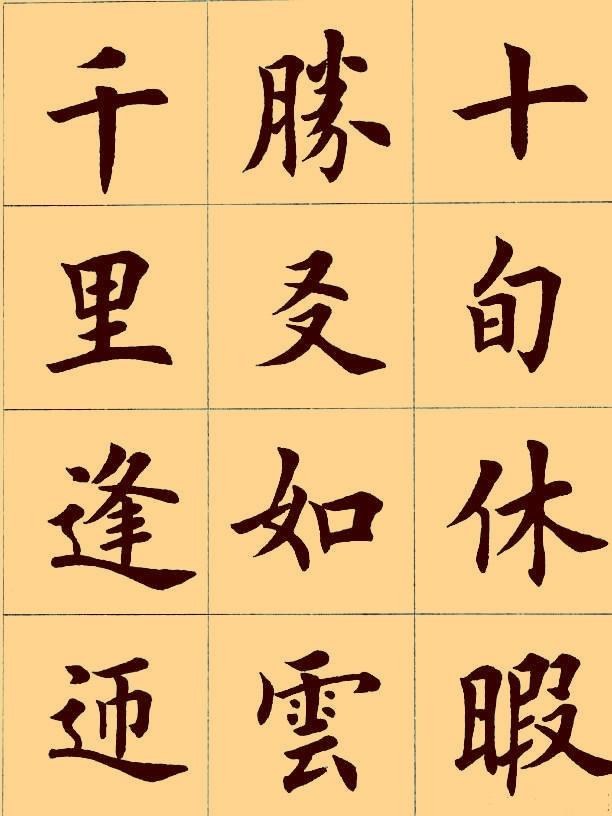 十旬休暇
勝㕛如雲
千里逢迊